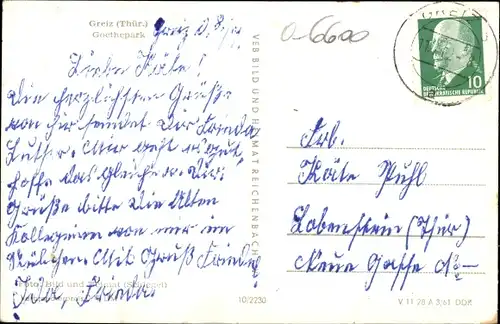 Greiz (Thür.)
Goethepark
Greiz d.
Liebe Käte!
Die herzlichsten Grüße
von hier sendet Dir Frieda
Luther. Mir geht es gut,
hoffe das Gleiche v. Dir.
Grüße bitte die alten
Kolleginnen von mir im
Mit Gruß Frieda
Frieda
Foto: Bild und Heimat
10/2230
VEB BILD UND HEIMAT REICHENBACH
o-6600
GREIZ
10
DEUTSCHE
DEMOKRATISCHE REPUBLIK
Frl.
Käte Puhl
Lobenstein (Thür)
Neue Gasse No-
V 11 28 A 3/61 DDR